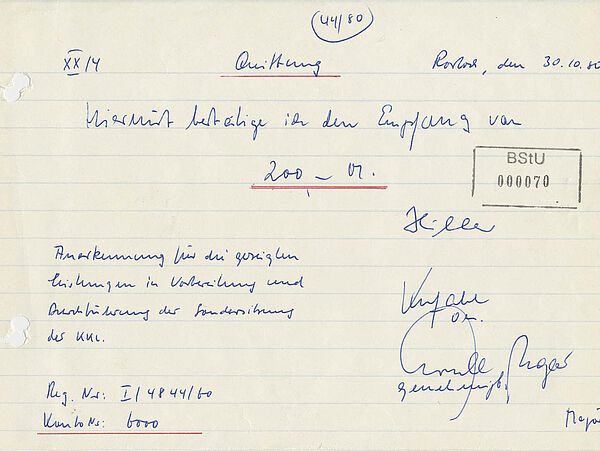 44/80
XX/4 Quittung Rostock, den 30.10.80
Hiermit bestätige ich den Empfang von
200,– M.
BStU
000070
Hiller
Anerkennung für die gezeigten
Leistungen in Vorbereitung und
Durchführung der Sondersitzung
der KKL.
genehmigt:
Reg. Nr: I/4844/60
Konto Nr: 6000
Major